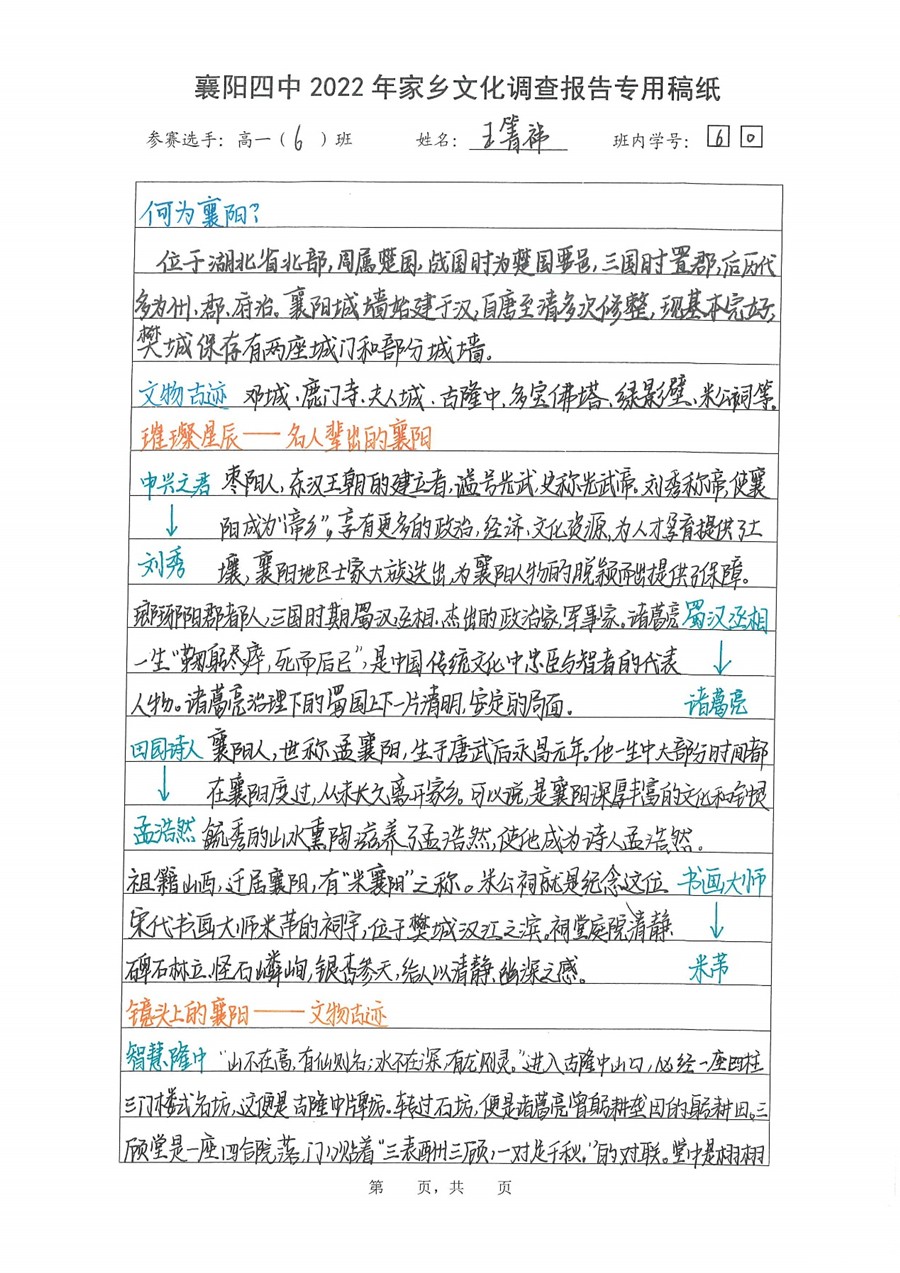 襄阳四中 2022 年家乡文化调查报告专用稿纸
参赛选手：高一（6）班 姓名：王箐祎 班内学号：6 0
何为襄阳？
位于湖北省北部，周属楚国，战国时为楚国要邑，三国时置郡，后历代
多为州、郡、府治。襄阳城墙始建于汉，自唐至清多次修整，现基本完好，
樊城保存有两座城门和部分城墙。
文物古迹 邓城、鹿门寺、夫人城、古隆中、多宝佛塔、绿影壁、米公祠等。
璀璨星辰——名人辈出的襄阳
中兴之君 枣阳人，东汉王朝的建立者，谥号光武，史称光武帝。刘秀称帝，使襄
↓ 阳成为“帝乡”，享有更多的政治，经济，文化资源，为人才孕育提供了土
刘秀 壤，襄阳地区士家大族迭出，为襄阳人物的脱颖而出提供了保障。
琅琊阳都人，三国时期蜀汉丞相，杰出的政治家，军事家。诸葛亮 蜀汉丞相
一生“鞠躬尽瘁，死而后已”，是中国传统文化中忠臣与智者的代表 ↓
人物。诸葛亮治理下的蜀国上下一片清明，安定的局面。 诸葛亮
田园诗人 襄阳人，世称孟襄阳，生于唐武后永昌元年。他一生中大部分时间都
↓ 在襄阳度过，从未长久离开家乡。可以说，是襄阳深厚丰富的文化和钟灵
孟浩然 毓秀的山水熏陶滋养了孟浩然，使他成为诗人孟浩然。
祖籍山西，迁居襄阳，有“米襄阳”之称。米公祠就是纪念这位 书画大师
宋代书画大师米芾的祠宇，位于樊城汉江之滨。祠堂庭院清静、 ↓
碑石林立、怪石嶙峋，银杏参天，给人以清静、幽深之感。 米芾
镜头上的襄阳——文物古迹
智慧隆中 “山不在高，有仙则名；水不在深，有龙则灵。”进入古隆中山口，必经一座四柱
三门楼式石坊，这便是古隆中牌坊。转过石坊，便是诸葛亮曾躬耕垄田的躬耕田。三
顾堂是一座四合院落，门以贴着“三表酬三顾，一对足千秋。”的对联。堂中是栩栩
第 页，共 页